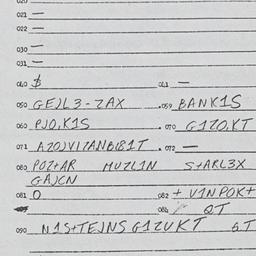 020
021 —
022 —
030 —
031 —
040 $ 041 —
050 GEJL3-ZAX .059 BANK1S
060 PJO,K1S . 070 G1ZO,KT
071 AZOJVIZANB181T . 072 —
080 POZ+AR MUZL1N S+ARL3X
GAJCN
081 O 082 + V1NPOK+
084 QT
090 N1S+TEJNS G1ZUKT GT